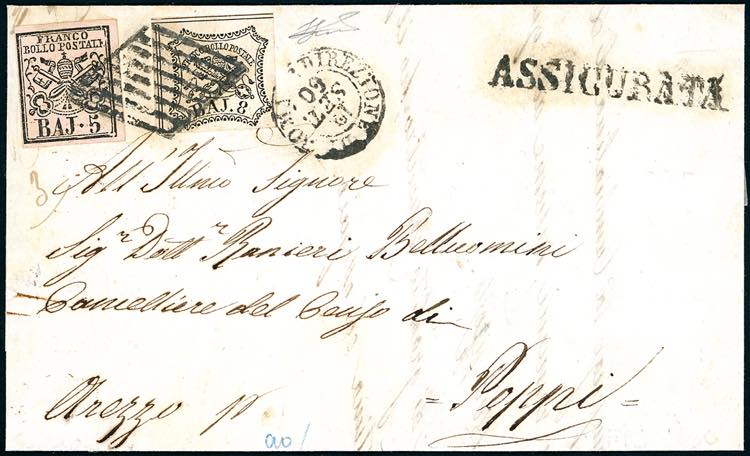 FRANCO
BOLLO POSTALE
BAJ. 5
BOLLO POSTALE
BAJ. 8
DIREZIONE
SET.
60
ASSICURATA
All' Illmo Signore
Sigr Dott.r Ranieri Belluomini
Cancelliere del Censo di
Arezzo p = Poppi =